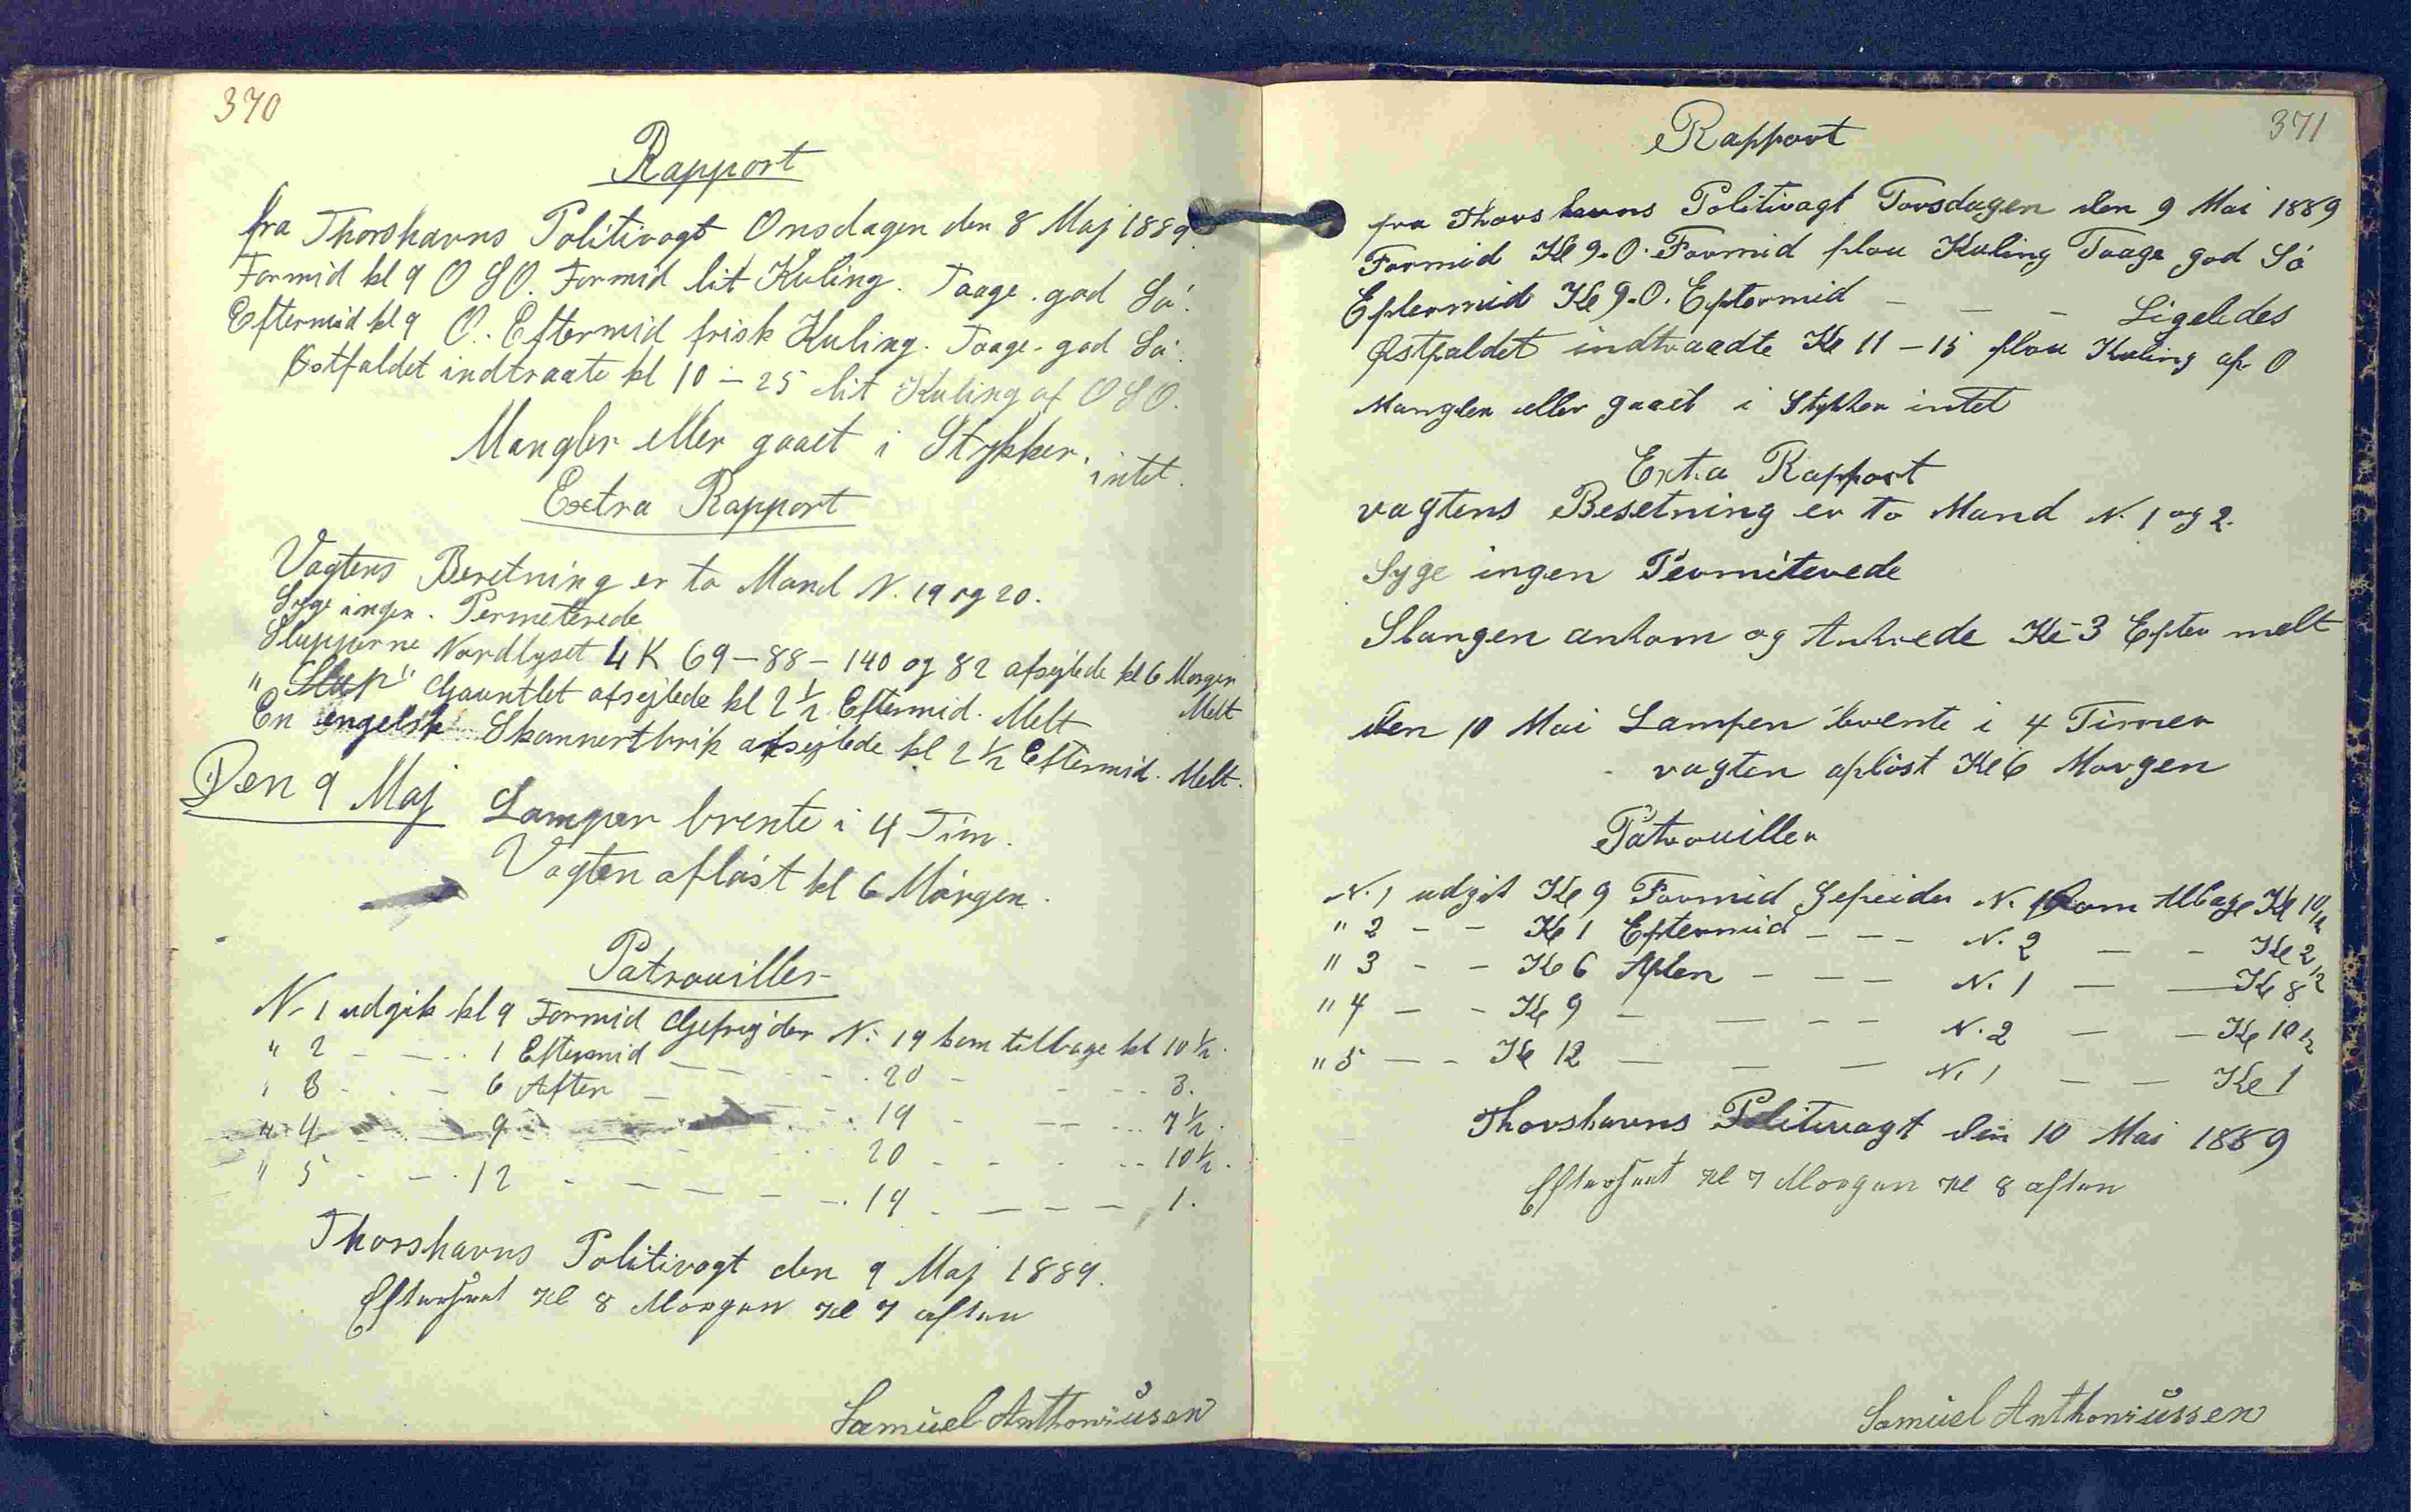 370
Rapport
fra Thorshavns Politivagt Onsdagen den 8 Maj 1889.
Formid kl 9 O S O. Formid lit Kuling. Taage. god Sö.
Eftermid kl 9 O. Eftermid frisk Kuling. Taage. god Sö.
Østfaldet indtraate kl 10 - 25 lit Kuling af O S O.
Mangler eller gaaet i Stykker. intet.
Extra Rapport
Vagtens Beretning er to Mand N. 19 og 20.
Syge ingen. Permeterede
Slupperne Nordlyset 4 K 69 - 88 - 140 og 82 afsejlede kl 6 Morgen
Melt
" Slup" Gauntlet afsejlede kl 2 1/2 Eftermid. Melt
En engelsk Skonnertbrik afsejlede kl 2 1/2 Eftermid. Melt.
Den 9 Maj Lamper brente i 4 Tim.
Vagten aflöst kl 6 Mórgen.
Patrouiller
N. 1 udgik kl 9 Formid Gefrejder N. 19 kom tilbage kl 10 1/2.
" 2 - - - 1 Eftermid - - - 20 - - - 3.
" 3 - - - 6 Aften - - - 19 - - - 7 1/2.
" 4 - - - 9 - - - 20 - - - 10 1/2.
" 5 - - - 12 - - - 19 - - - 1.
Thorshavns Politivagt den 9 Maj 1889.
Efterseet Kl 8 Morgen Kl 7 aften
Samuel Anthoniusen
371
Rapport
fra Thorshavns Politivagt Torsdagen den 9 Mai 1889
Formid Kl 9. O. Formid flou Kuling Taage god Sö
Eftermid Kl 9. O. Eftermid - - - Ligeledes
Østfaldet indtraadte Kl 11 - 15 flou Kuling af O
Mangler eller gaaet i Stykker intet
Exta Rapport
vagtens Besetning er to Mand N. 1 og 2.
Syge ingen Permiterede
Slangen ankom og Ankrede Kl 3 Efter melt
den 10 Mai Lampen brente i 4 Timer
vagten aflöst Kl 6 Morgen
Patrouiller
N. 1 udgik Kl 9 Formid Gefreider N. 1 kom tilbage Kl 10 1/2
" 2 - - Kl 1 Eftermid - - - N. 2 - - Kl 2 1/2
" 3 - - Kl 6 Aften - - - N. 1 - - Kl 8
" 4 - - Kl 9 - - - - N. 2 - - Kl 10 1/2
" 5 - - Kl 12 - - - N. 1 - - Kl 1
Thorshavns Politivagt den 10 Mai 1889
Efterseet Kl 7 Morgen Kl 8 aften
Samuel Anthoniussen